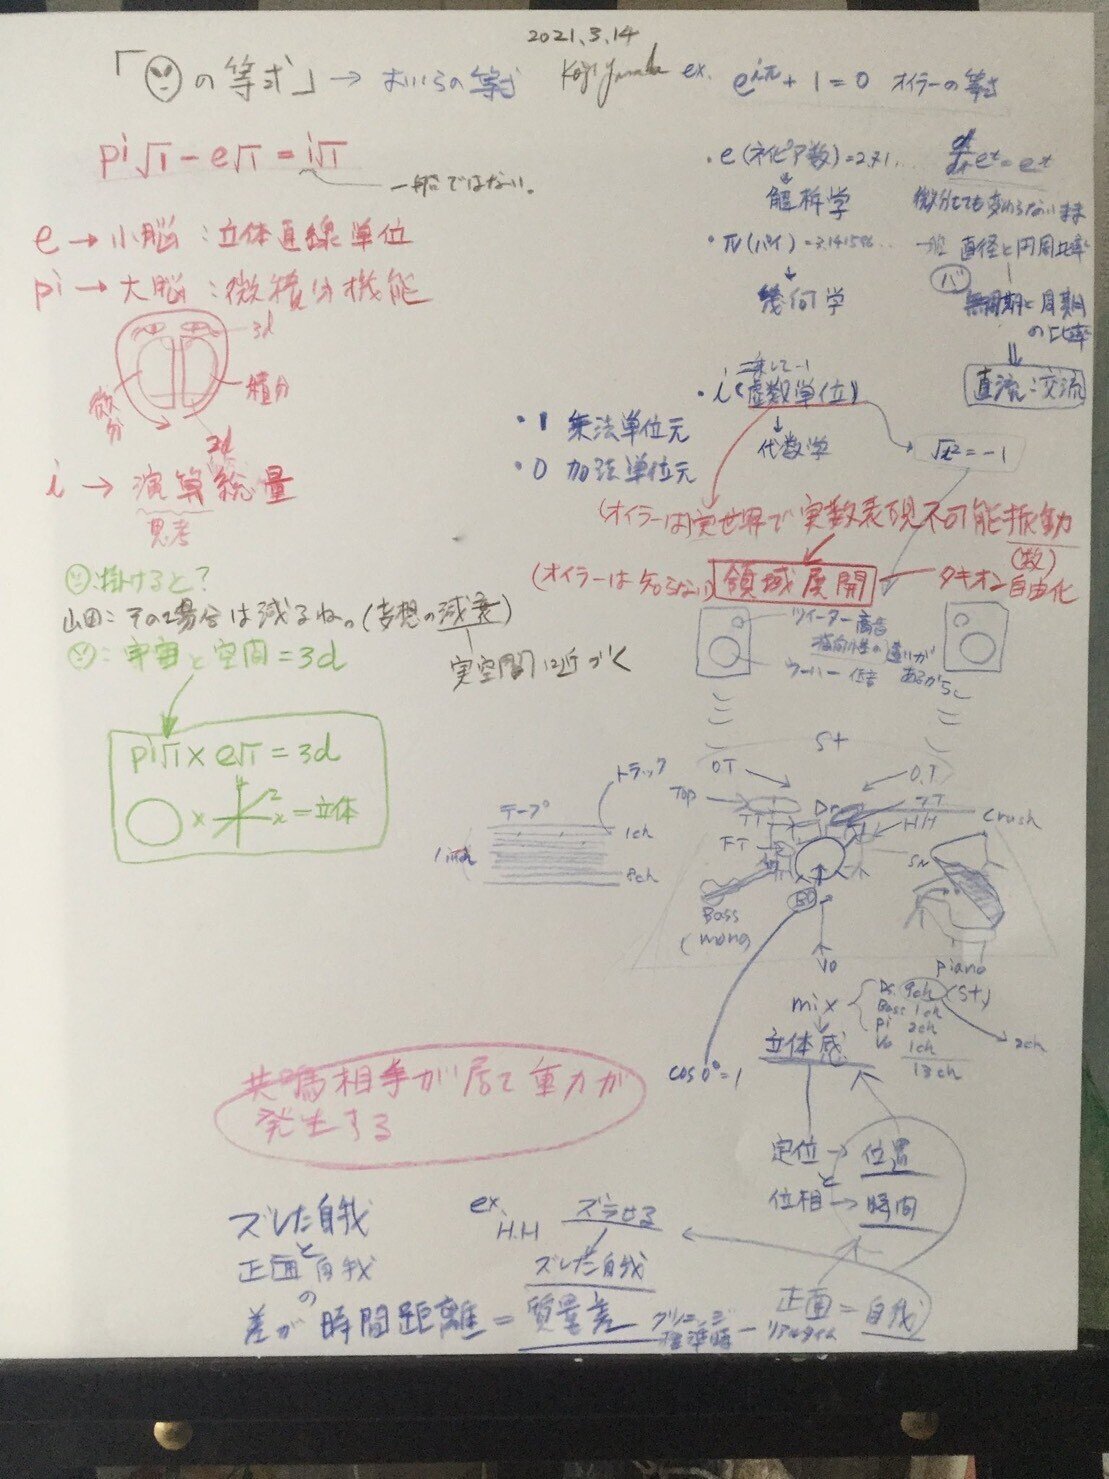 2021.3.14
「の等式」→ おいらの等式
ex. e^iπ + 1 = 0 オイラーの等式
pi√1 − e√1 = i√1
一般ではない。
e → 小脳：立体直線単位
pi → 大脳：微積分機能
3d
微分
積分
i → 演算総量
思考
:掛けると？
山田：その場合は減るね。(妄想の減衰)
実空間に近づく
:宇宙と空間=3d
pi√1 × e√1 = 3d
× = 立体
・e (ネイピア数)=2.71..
解析学
微分しても変わらないまま
・π(パイ)=3.141596...
幾何学
直径と円周比率
無周期と周期の比率
直流：交流
二乗して-1
・i (虚数単位)
代数学
・1 乗法単位元
・0 加法単位元
√i² = -1
(オイラーは)実世界で実数表現不可能振動(数)
(オイラーは知らない) 領域展開
タキオン自由化
ツイーター 高音
ウーハー 低音
指向性の違いがあるから
St
O.T
O.T
Top
Dr
TT
TT
HH
FT
SN
Crush
BD
Bass
(mono)
Vo
piano
(St)
テープ
トラック
1ch
8ch
1 inch
mix
Dr. 9ch
Bass 1ch
Pi 2ch
Vo 1ch
13ch
2ch
立体感
cos0°=1
定位 → 位置
と
位相 → 時間
共鳴相手が居て重力が
発生する
ex.
H.H
ズラせる
ズレた自我
ズレた自我
と
正面自我
の
差が時間距離 = 質量差
グリニッジ
標準時
正面 = 自我
リアルタイム